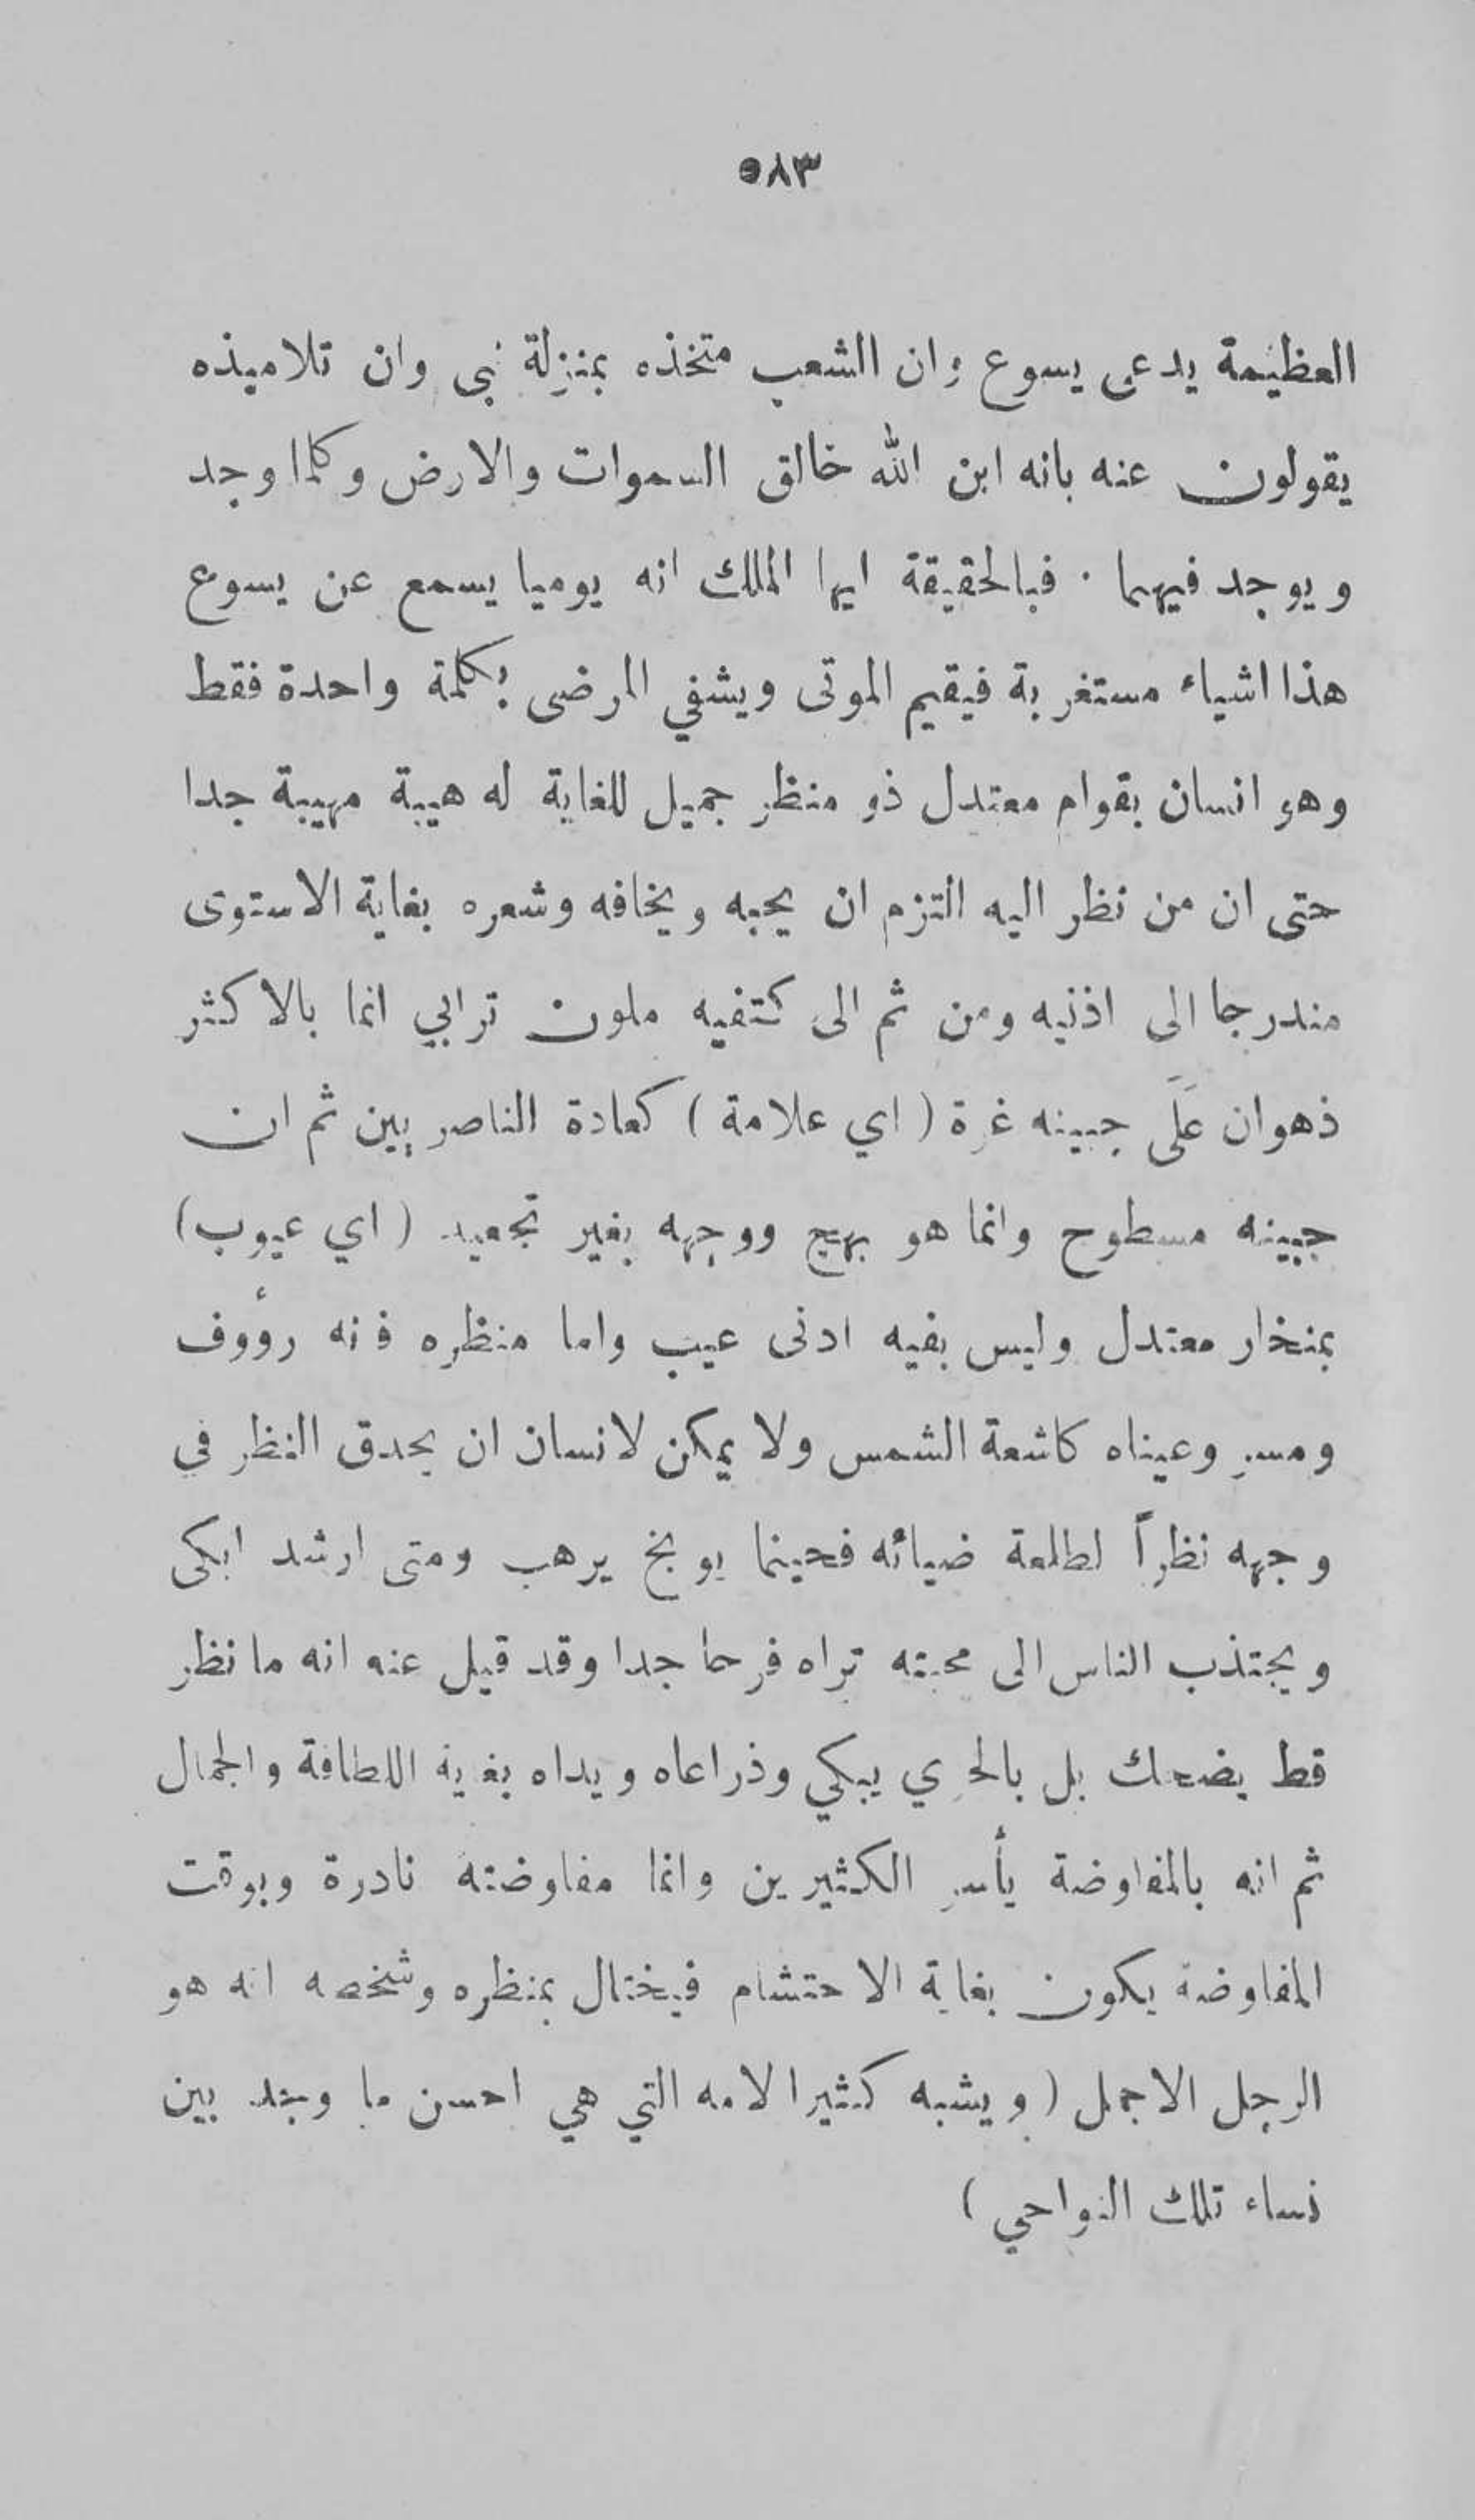 ٥٨٣
العظيمة يدعى يسوع وان الشعب متخذه بمنزلة نبى وان تلاميذه
يقولون عنه بانه ابن الله خالق السموات والارض وكلما وجد
ويوجد فيهما . فبالحقيقة ايها الملك انه يوميا يسمع عن يسوع
هذا اشياء مستغربة فيقيم الموتى ويشفي المرضى بكلمة واحدة فقط
وهو انسان بقوام معتدل ذو منظر جميل للغاية له هيبة مهيبة جدا
حتى ان من نظر اليه التزم ان يحبه ويخافه وشعره بغاية الاستوى
مندرجا الى اذنيه ومن ثم الى كتفيه ملون ترابي انما بالاكثر
ذهوان عَلَى جبينه غرة (اي علامة) كعادة الناصريين ثم ان
جبينه مسطوح وانما هو بهيج ووجهه بغير تجعيد (اي عيوب)
بمنخار معتدل وليس بفيه ادنى عيب واما منظره فانه رؤوف
ومسر وعيناه كاشعة الشمس ولا يمكن لانسان ان يحدق النظر في
وجهه نظراً لطلعة ضيائه فحينما يوبخ يرهب ومتى ارشد ابكى
ويجتذب الناس الى محبته تراه فرحا جدا وقد قيل عنه انه ما نظر
قط يضحك بل بالحري يبكي وذراعاه ويداه بغاية اللطافة والجمال
ثم انه بالمفاوضة يأسر الكثيرين وانما مفاوضته نادرة وبوقت
المفاوضة يكون بغاية الاحتشام فيختال بمنظره وشخصه انه هو
الرجل الاجمل (ويشبه كثيرا لامه التي هي احسن ما وجد بين
نساء تلك النواحي)